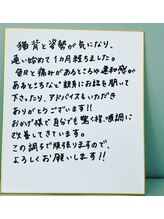 猫背と姿勢が気になり、
通い始めて1カ月経ちました。
毎回と痛みがあるところや違和感が
あるところなど親身にお話を聞いて
下さったり、アドバイスもいただき
ありがとうございます!!
おかげ様で自分でも驚く程、順調に
改善してきています。
この調子で頑張りますので、
よろしくお願いします!!